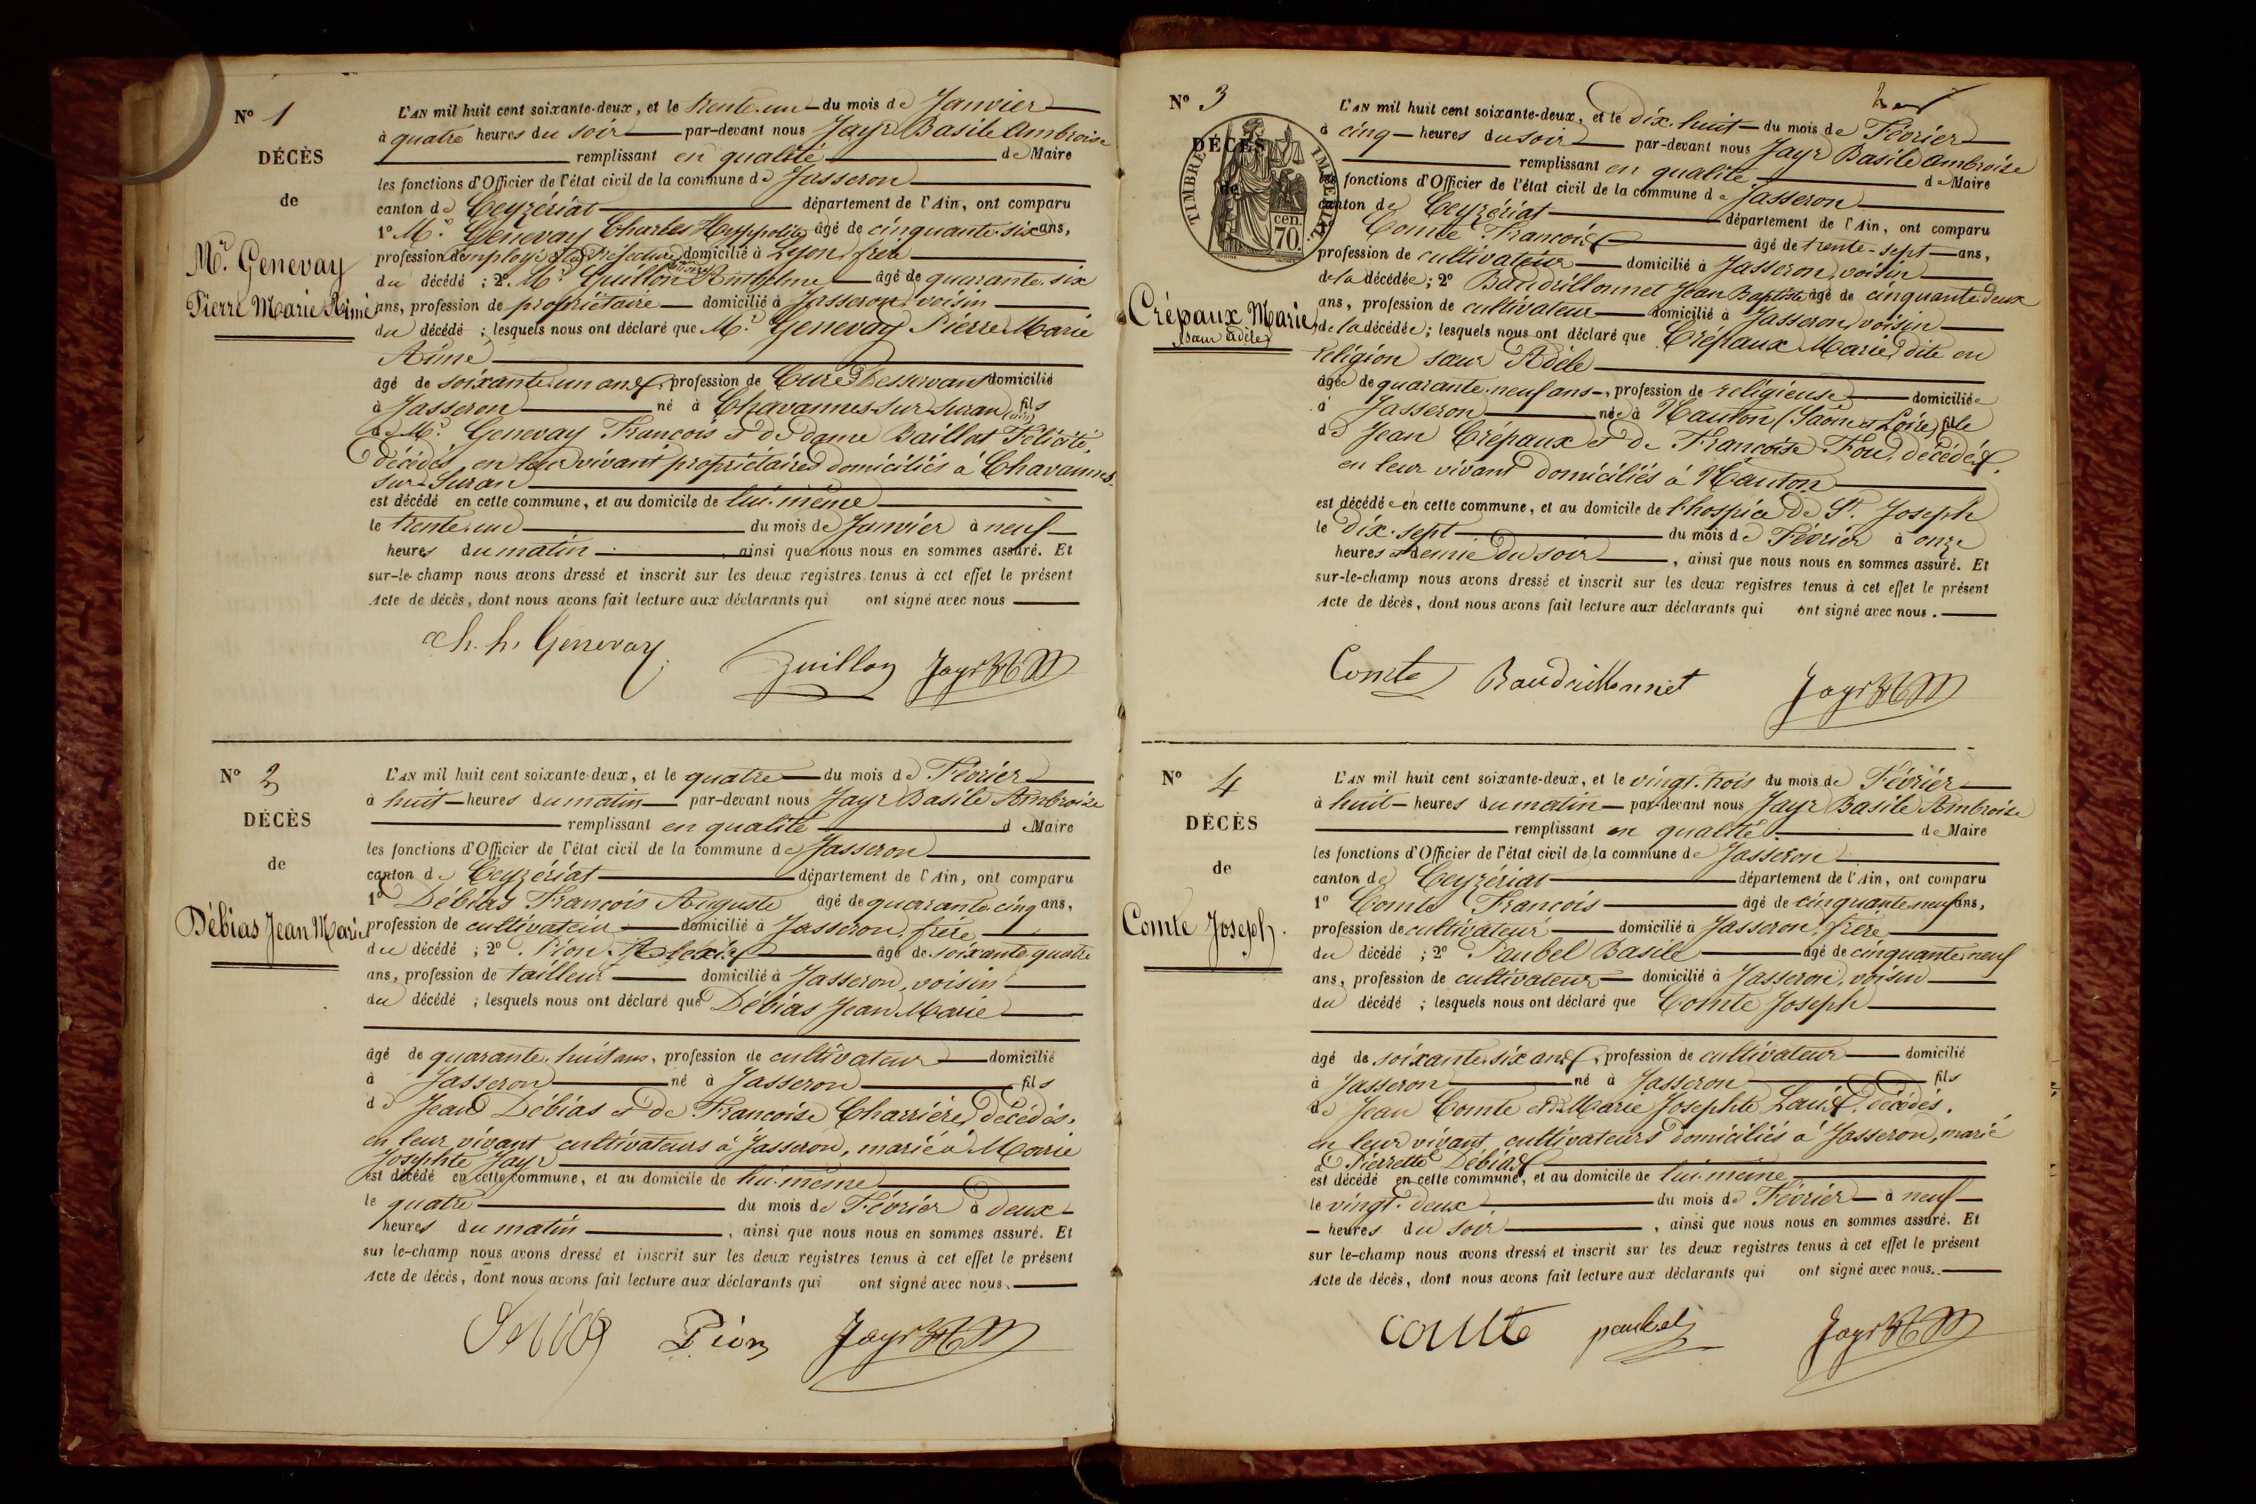 N° 1
DÉCÈS
de
Mr. Genevay
Pierre Marie Aimé
L'AN mil huit cent soixante-deux, et le trente-un du mois de Janvier
à quatre heures du soir par-devant nous Jayr Basile Ambroise
remplissant en qualité de Maire
les fonctions d'Officier de l'état civil de la commune de Jasseron
canton de Ceyzériat département de l'Ain, ont comparu
1° Mr. Genevay Charles Hyppolite âgé de cinquante-six ans,
profession de employé à la Préfecture domicilié à Lyon, frère
du décédé ; 2° Mr. Guillon Anthelme âgé de quarante-six
ans, profession de propriétaire domicilié à Jasseron, voisin
du décédé ; lesquels nous ont déclaré que Mr. Genevay Pierre Marie
Aimé
âgé de soixante-un ans, profession de Curé Desservant domicilié
à Jasseron né à Chavannes-sur-Suran (ain) fils
de Mr. Genevay François et de dame Baillat Félicité,
décédés, en leur vivant propriétaires domiciliés à Chavannes-
sur-Suran
est décédé en cette commune, et au domicile de lui-même
le trente-un du mois de Janvier à neuf
heures du matin , ainsi que nous nous en sommes assuré. Et
sur-le-champ nous avons dressé et inscrit sur les deux registres tenus à cet effet le présent
Acte de décès, dont nous avons fait lecture aux déclarants qui ont signé avec nous
ch. h. Genevay Guillon Jayr
N° 2
DÉCÈS
de
Débias Jean Marie
L'AN mil huit cent soixante-deux, et le quatre du mois de Février
à huit heures du matin par-devant nous Jayr Basile Ambroise
remplissant en qualité de Maire
les fonctions d'Officier de l'état civil de la commune de Jasseron
canton de Ceyzériat département de l'Ain, ont comparu
1° Débias François Auguste âgé de quarante-cinq ans,
profession de cultivateur domicilié à Jasseron, frère
du décédé ; 2° Pion Alexis âgé de soixante-quatre
ans, profession de tailleur domicilié à Jasseron, voisin
du décédé ; lesquels nous ont déclaré que Débias Jean Marie
âgé de quarante-huit ans, profession de cultivateur domicilié
à Jasseron né à Jasseron fils
de Jean Débias et de Françoise Charrière, décédés,
en leur vivant cultivateurs à Jasseron, marié à Marie
Josephte Jayr
est décédé en cette commune, et au domicile de lui-même
le quatre du mois de Février à deux
heures du matin , ainsi que nous nous en sommes assuré. Et
sur le-champ nous avons dressé et inscrit sur les deux registres tenus à cet effet le présent
Acte de décès, dont nous avons fait lecture aux déclarants qui ont signé avec nous.
Débias Pion Jayr
N° 3
DÉCÈS
de
TIMBRE IMPÉRIAL
70 cen.
Crépaux Marie,
(Sœur Adèle)
L'AN mil huit cent soixante-deux, et le dix-huit du mois de Février
à cinq heures du soir par-devant nous Jayr Basile Ambroise
remplissant en qualité de Maire
les fonctions d'Officier de l'état civil de la commune de Jasseron
canton de Ceyzériat département de l'Ain, ont comparu
Comte François âgé de trente-sept ans,
profession de cultivateur domicilié à Jasseron, voisin
de la décédée ; 2° Baudrillonnet Jean Baptiste âgé de cinquante-deux
ans, profession de cultivateur domicilié à Jasseron, voisin
de la décédée ; lesquels nous ont déclaré que Crépaux Marie, dite en
religion sœur Adèle
âgée de quarante-neuf ans, profession de religieuse domiciliée
à Jasseron née à Nanton (Saône et Loire) fille
de Jean Crépaux et de Françoise Fou, décédés.
en leur vivant domiciliés à Nanton
est décédée en cette commune, et au domicile de l'hospice de St. Joseph
le dix-sept du mois de Février à onze
heures et demie du soir , ainsi que nous nous en sommes assuré. Et
sur-le-champ nous avons dressé et inscrit sur les deux registres tenus à cet effet le présent
Acte de décès, dont nous avons fait lecture aux déclarants qui ont signé avec nous.
Comte Baudrillonnet Jayr
N° 4
DÉCÈS
de
Comte Joseph.
L'AN mil huit cent soixante-deux, et le vingt-trois du mois de Février
à huit heures du matin par-devant nous Jayr Basile Ambroise
remplissant en qualité de Maire
les fonctions d'Officier de l'état civil de la commune de Jasseron
canton de Ceyzériat département de l'Ain, ont comparu
1° Comte François âgé de cinquante-neuf ans,
profession de cultivateur domicilié à Jasseron, frère
du décédé ; 2° Paubel Basile âgé de cinquante-neuf
ans, profession de cultivateur domicilié à Jasseron, voisin
du décédé ; lesquels nous ont déclaré que Comte Joseph
âgé de soixante-six ans, profession de cultivateur domicilié
à Jasseron né à Jasseron fils
de Jean Comte et de Marie Josephte décédés,
en leur vivant cultivateurs domiciliés à Jasseron, marié
à Pierrette Débias
est décédé en cette commune, et au domicile de lui-même
le vingt-deux du mois de Février à neuf
heures du soir , ainsi que nous nous en sommes assuré. Et
sur le-champ nous avons dressé et inscrit sur les deux registres tenus à cet effet le présent
Acte de décès, dont nous avons fait lecture aux déclarants qui ont signé avec nous.
comte paubel Jayr